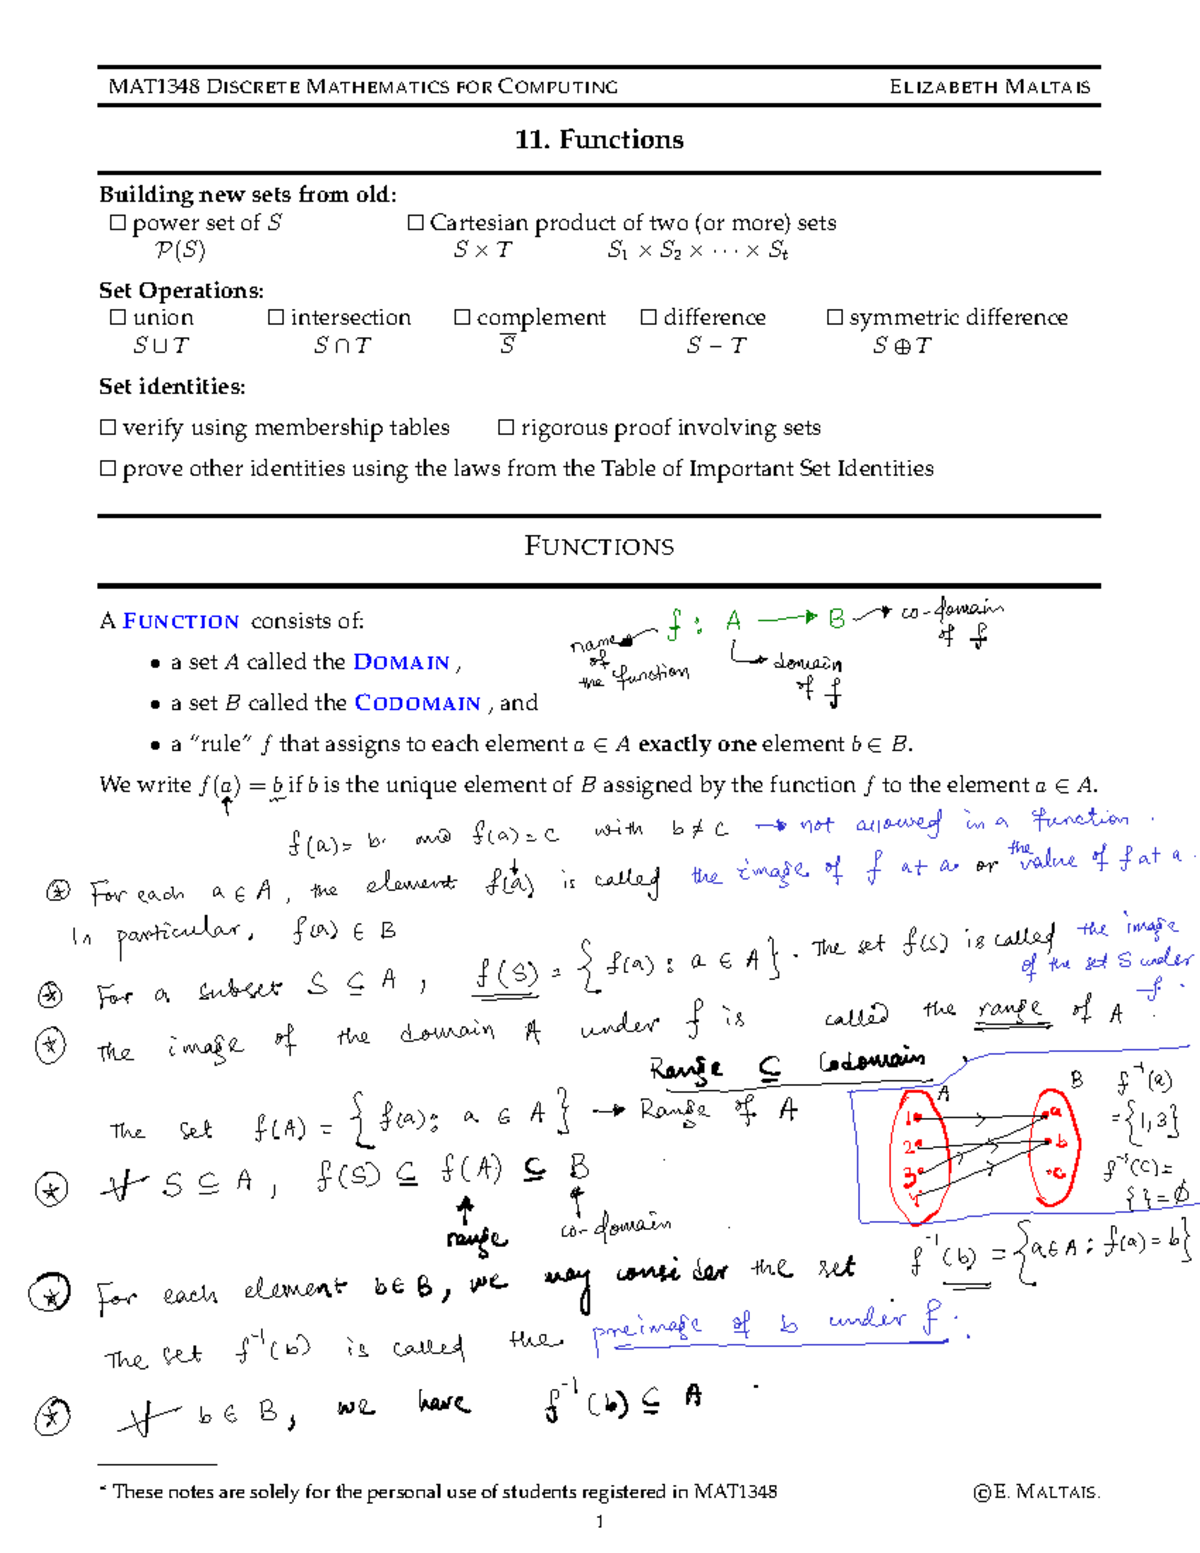 MAT1348 DISCRETE MATHEMATICS FOR COMPUTING ELIZABETH MALTAIS
11. Functions
Building new sets from old:
□ power set of S □ Cartesian product of two (or more) sets
P(S) S × T S₁ × S₂ × ··· × Sₜ
Set Operations:
□ union □ intersection □ complement □ difference □ symmetric difference
S ∪ T S ∩ T S̅ S − T S ⊕ T
Set identities:
□ verify using membership tables □ rigorous proof involving sets
□ prove other identities using the laws from the Table of Important Set Identities
FUNCTIONS
A FUNCTION consists of:
f : A → B → co-domain of f
name of the function
domain of f
• a set A called the DOMAIN ,
• a set B called the CODOMAIN , and
• a "rule" f that assigns to each element a ∈ A exactly one element b ∈ B.
We write f(a) = b if b is the unique element of B assigned by the function f to the element a ∈ A.
f(a) = b. and f(a) = c with b ≠ c → not allowed in a function.
⊛ For each a ∈ A, the element f(a) is called the image of f at a or the value of f at a.
In particular, f(a) ∈ B
⊛ For a subset S ⊆ A, f(S) = {f(a) : a ∈ A}. The set f(S) is called the image of the set S under f.
⊛ The image of the domain A under f is called the range of A.
Range ⊆ Codomain
The set f(A) = {f(a) : a ∈ A} → Range of A
A B
1 a
2 b
3 c
4
f⁻¹(a) = {1,3}
f⁻¹(c) = { } = ∅
⊛ ∀ S ⊆ A, f(S) ⊆ f(A) ⊆ B
range co-domain
⊛ For each element b ∈ B, we may consider the set f⁻¹(b) = {a ∈ A : f(a) = b}
The set f⁻¹(b) is called the preimage of b under f.
⊛ ∀ b ∈ B, we have f⁻¹(b) ⊆ A.
* These notes are solely for the personal use of students registered in MAT1348 ©E. MALTAIS.
1